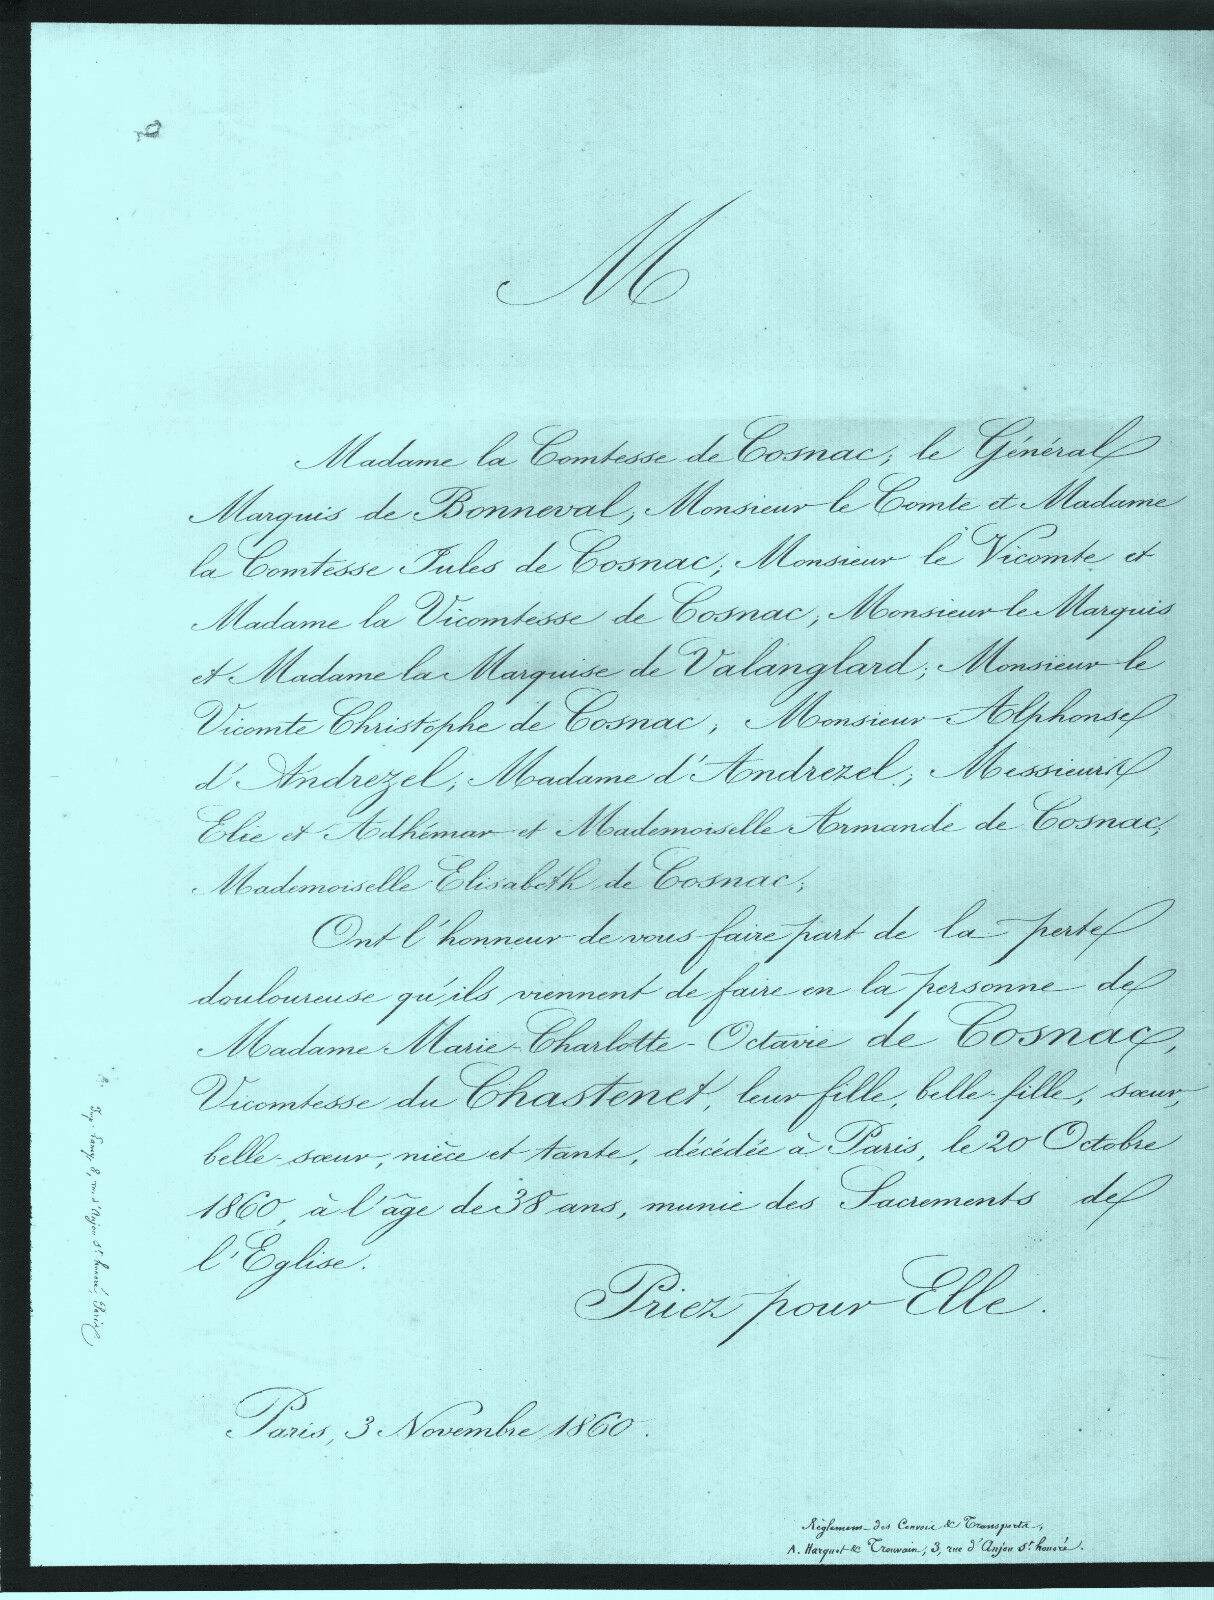 M
Madame la Comtesse de Cosnac; le Général
Marquis de Bonneval; Monsieur le Comte et Madame
la Comtesse Jules de Cosnac; Monsieur le Vicomte et
Madame la Vicomtesse de Cosnac; Monsieur le Marquis
et Madame la Marquise de Valanglard; Monsieur le
Vicomte Christophe de Cosnac; Monsieur Alphonse
d'Andrezel; Madame d'Andrezel; Messieurs
Elie et Adhémar et Mademoiselle Armande de Cosnac;
Mademoiselle Elisabeth de Cosnac;
Ont l'honneur de vous faire part de la perte
douloureuse qu'ils viennent de faire en la personne de
Madame Marie-Charlotte-Octavie de Cosnac,
Vicomtesse du Chastenet, leur fille, belle-fille, sœur,
belle-sœur, nièce et tante, décédée à Paris, le 20 Octobre
1860, à l'âge de 38 ans, munie des Sacrements de
l'Eglise.
Priez pour Elle.
Paris, 3 Novembre 1860.
Règlement des Convois & Transports,
A. Harquet & Trouvain, 3, rue d'Anjou St. honoré.
8, rue d'Anjou St. honoré, Paris